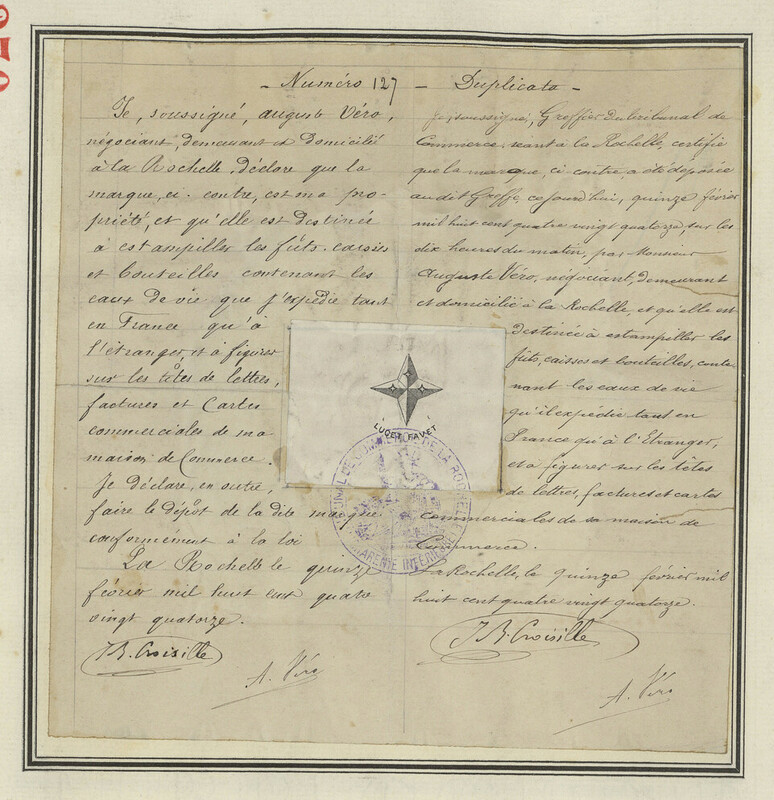 - Numéro 127 - Duplicata -
Je, soussigné, Auguste Véro,
négociant, demeurant et domicilié
à la Rochelle, déclare que la
marque, ci-contre, est ma pro-
priété, et qu'elle est destinée
à estampiller les fûts, caisses
et bouteilles contenant les
eaux de vie que j'expédie tant
en France qu'à
l'étranger, et à figurer
sur les têtes de lettres,
factures et Cartes
commerciales de ma
maison de Commerce.
Je déclare, en outre,
faire le dépôt de la dite marque
conformément à la loi
La Rochelle le quinze
février mil huit cent quatre
vingt quatorze.
J B. Croisille
A. Véro
Je, soussigné, Greffier du tribunal de
Commerce, séant à la Rochelle, certifie
que la marque, ci-contre, a été déposée
au dit Greffe, ce jourd'hui, quinze février
mil huit cent quatre vingt quatorze, sur les
dix heures du matin, par Monsieur
Auguste Véro, négociant, demeurant
et domicilié à la Rochelle, et qu'elle est
destinée à estampiller les
fûts, caisses et bouteilles, conte-
nant les eaux de vie
qu'il expédie tant en
France qu'à l'Etranger,
et à figurer sur les têtes
de lettres, factures et cartes
commerciales de sa maison de
Commerce.
La Rochelle, le quinze février mil
huit cent quatre vingt quatorze.
J B. Croisille
A. Véro
LUCET FAVET
TRIBUNAL DE COMMERCE DE LA ROCHELLE
CHARENTE INFERIEURE